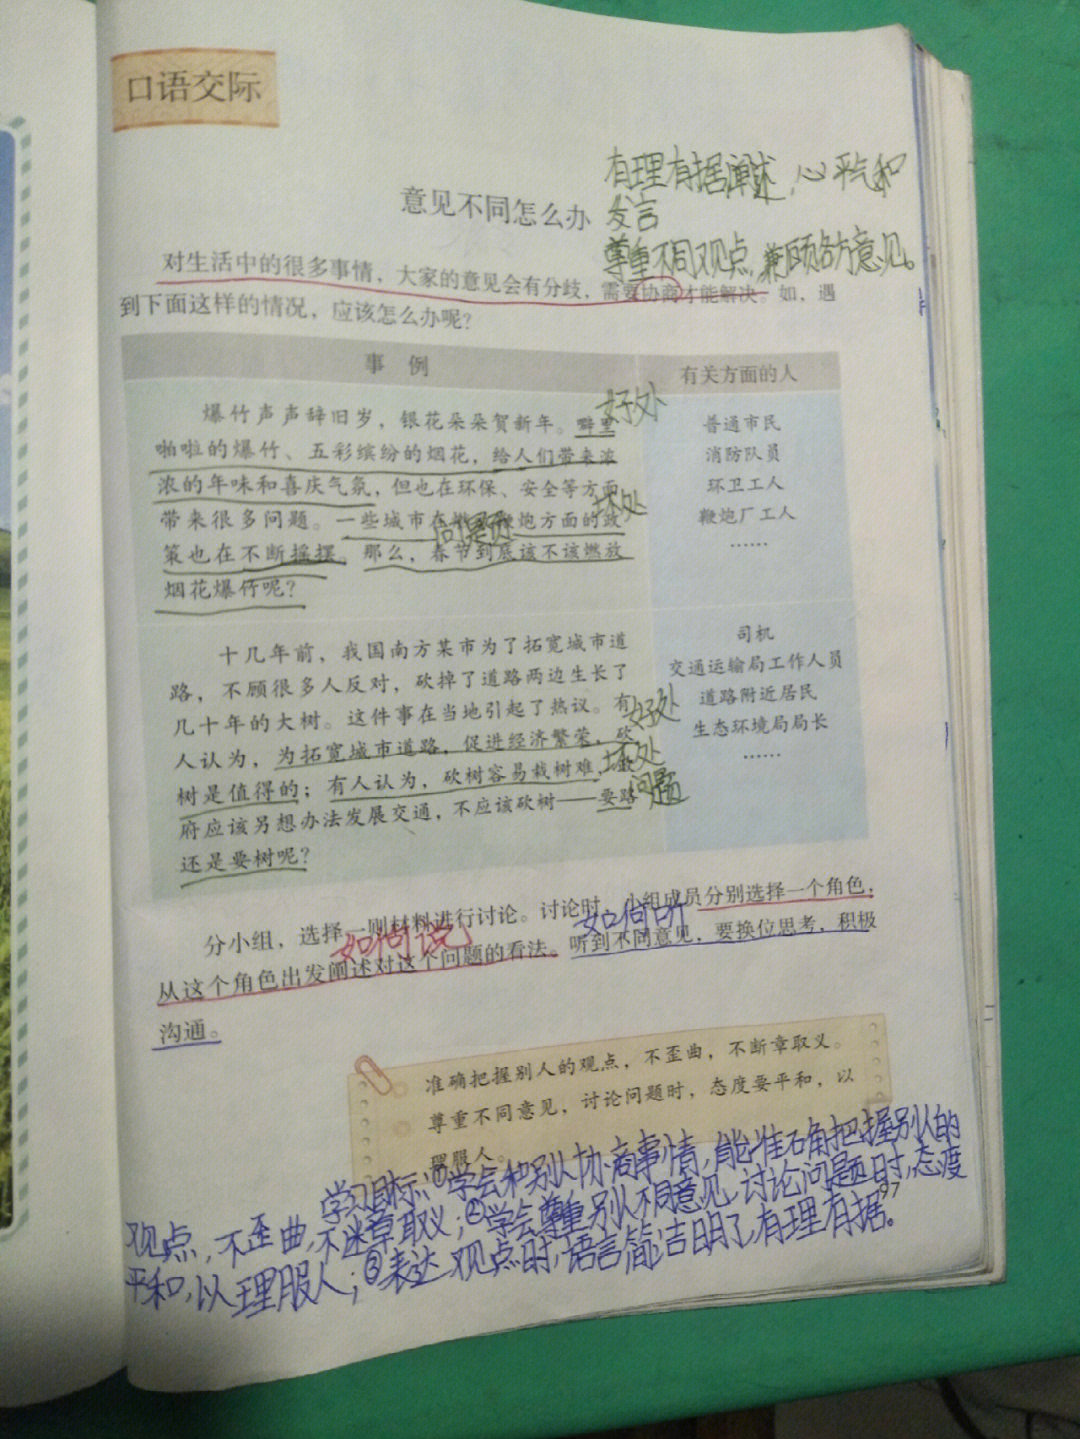 口语交际
有理有据阐述，心平气和
意见不同怎么办
发言
尊重不同观点，兼顾各方意见。
对生活中的很多事情，大家的意见会有分歧，需要协商才能解决。如，遇
到下面这样的情况，应该怎么办呢？
事 例
有关方面的人
好处
爆竹声声辞旧岁，银花朵朵贺新年。噼里
啪啦的爆竹、五彩缤纷的烟花，给人们带来浓
浓的年味和喜庆气氛，但也在环保、安全等方面
坏处
带来很多问题。一些城市在鞭炮方面的政
问题
策也在不断摇摆。那么，春节到底该不该燃放
烟花爆竹呢？
普通市民
消防队员
环卫工人
鞭炮厂工人
……
十几年前，我国南方某市为了拓宽城市道
路，不顾很多人反对，砍掉了道路两边生长了
几十年的大树。这件事在当地引起了热议。有
好处
人认为，为拓宽城市道路，促进经济繁荣，砍
坏处
树是值得的；有人认为，砍树容易栽树难，
问题
府应该另想办法发展交通，不应该砍树——要路
还是要树呢？
司机
交通运输局工作人员
道路附近居民
生态环境局局长
……
分小组，选择一则材料进行讨论。讨论时，小组成员分别选择一个角色，
如何说
如何听
从这个角色出发阐述对这个问题的看法。听到不同意见，要换位思考，积极
沟通。
准确把握别人的观点，不歪曲，不断章取义。
尊重不同意见，讨论问题时，态度要平和，以
服人。
学习目标：①学会和别人协商事情，能准确把握别人的
97
观点，不歪曲，不迷章取义；②学会尊重别人不同意见，讨论问题时，态度
平和，以理服人；③表达观点时，语言简洁明了，有理有据。